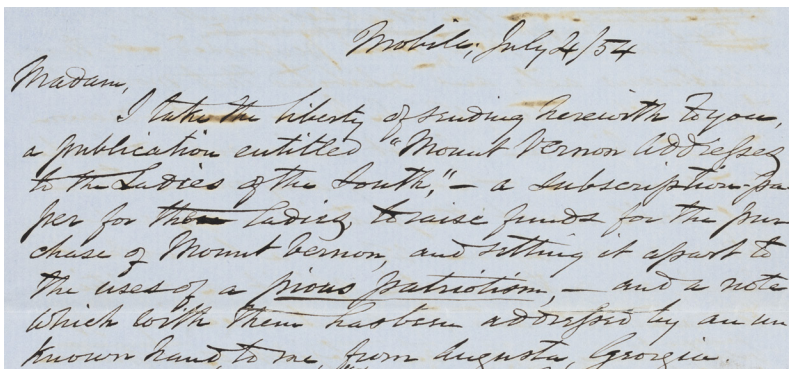 Mobile, July 4/54
Madam,
I take the liberty of sending herewith to you,
a publication entitled "Mount Vernon Addresses
to the Ladies of the South," – a subscription-pa
per for the ladies, to raise funds for the pur
chase of Mount Vernon, and setting it apart to
the uses of a pious patriotism, – and a note
which with them has been addressed by an un
known hand, to me, from Augusta, Georgia.